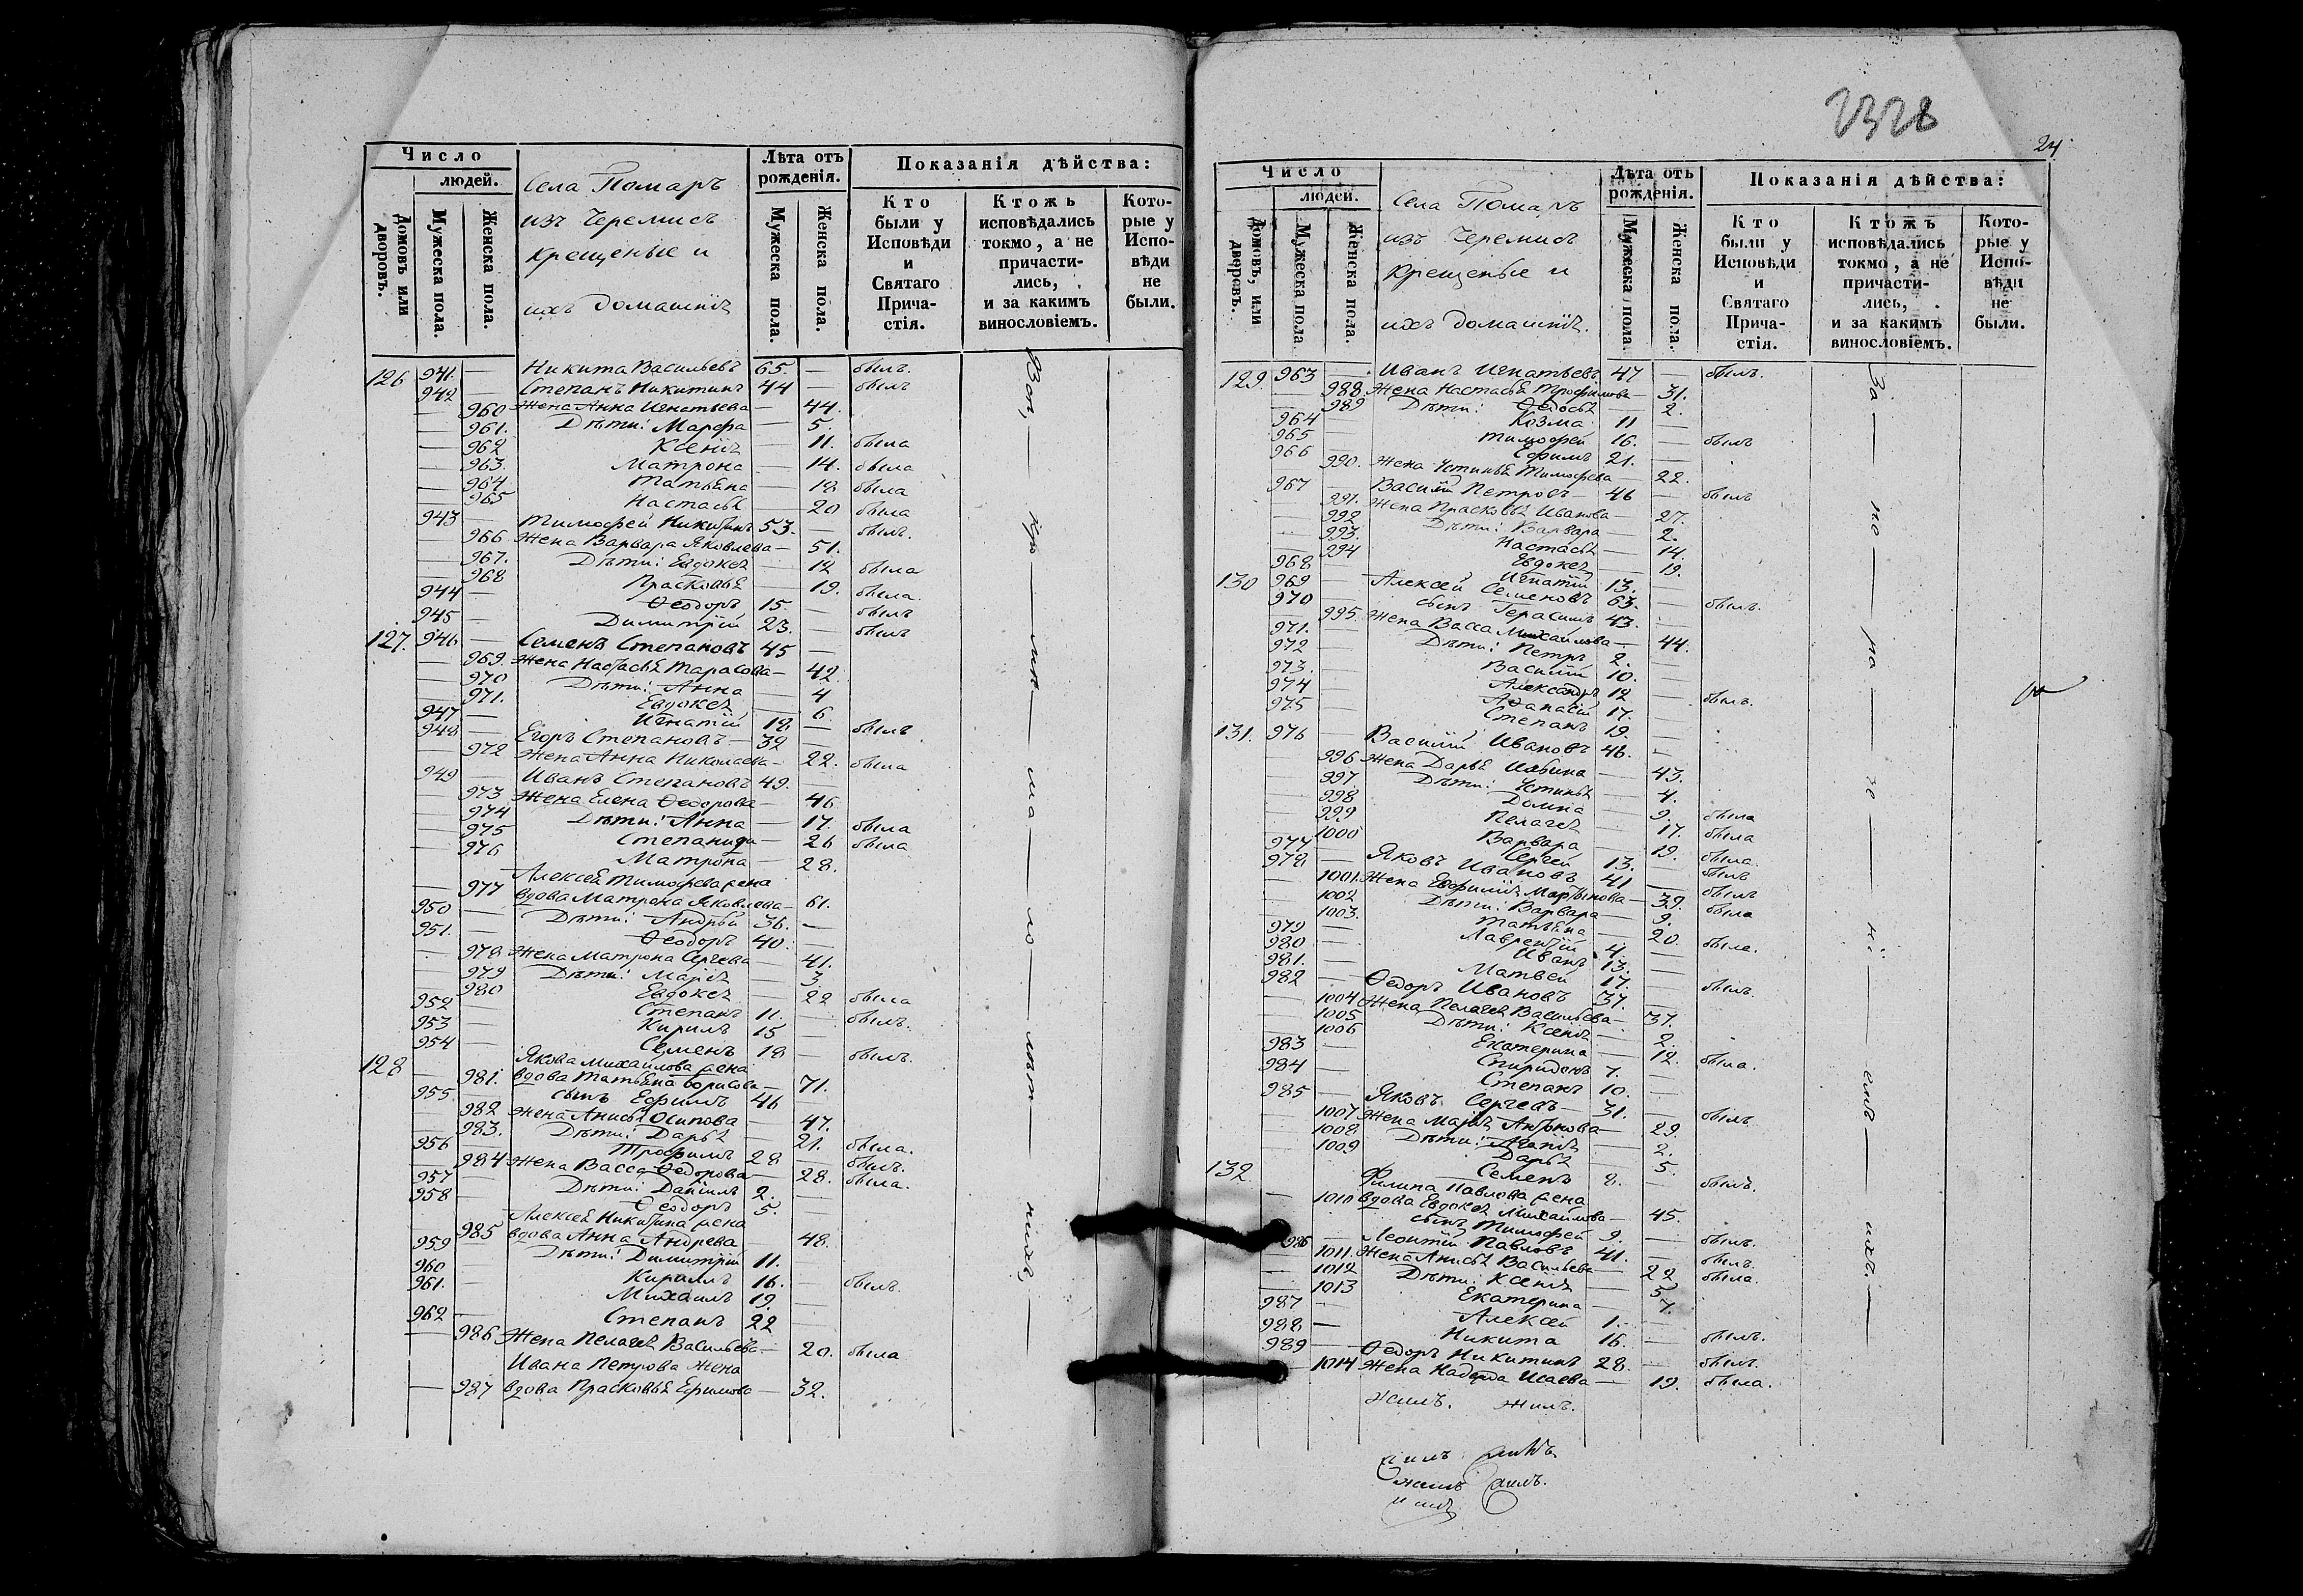 Число
людей.
Домовъ или дворовъ.
Мужеска пола.
Женска пола.
Села Помаръ
изъ Черемисъ
крещеные и
ихъ домашніѣ
Лѣта отъ рожденія.
Мужеска пола.
Женска пола.
Показанія дѣйства:
Кто были у Исповѣди и Святаго Причастія.
Ктожъ исповѣдались токмо, а не причастились, и за какимъ винословіемъ.
Которые у Исповѣди не были.
126 941. — Никита Васильевъ 65. — былъ.
942 — Степанъ Никитинъ 44 — былъ
— 960 Жена Анна Игнатьева — 44.
— 961. Дѣти: Марфа — 5.
— 962 Ксеніѣ — 11. была
— 963. Матрона — 14. была
— 964 Татьѣна — 18 была
— 965 Настасьѣ — 20 была
943 — Тимофей Никитинъ 53. — былъ.
— 966 Жена Варвара Яковлева — 51.
— 967. Дѣти: Евдокеѣ — 12 была
— 968 Прасковьѣ — 19. была.
944 — Ѳеодоръ 15. — былъ
945 — Димитрій 23. — былъ
127. 946 — Семенъ Степановъ 45 —
— 969. Жена Настасьѣ Тарасова — 42.
— 970 Дѣти: Анна — 4
— 971. Евдокеѣ — 6.
947 — Игнатій 12. — былъ
948 — Егоръ Степановъ — 32 —
— 972 Жена Анна Николаева — 22. была
949 — Иванъ Степановъ 49. —
— 973 Жена Елена Ѳеодорова — 46
— 974 Дѣти: Анна — 17. была
— 975 Степанида — 26 была
— 976 Матрона — 28.
Алексеѣ Тимофева жена
— 977 вдова Матрона Яковлева — 61.
950 — Дѣти: Андрей 36. —
951. — Ѳеодоръ 40. —
— 978 Жена Матрона Сергева — 41.
— 979 Дѣти: Маріѣ — 3.
— 980 Евдокеѣ — 22 была
952 — Степанъ 11. — былъ.
953 — Кирилъ 15 —
954 — Семенъ 18 — былъ.
128 Якова Михаилова жена
— 981. вдова Татьѣна Борисова — 71.
955 — сынъ Ефимъ 46
— 982 Жена Анисьѣ Осипова — 47.
— 983. Дѣти: Дарьѣ — 21. была.
956 — Трофимъ 28 — былъ.
— 984 Жена Васса Ѳедорова — 28. была.
957 — Дѣти: Даніилъ 2. —
958 — Ѳеодоръ 5. —
Алексеѣ Никитина жена
— 985 вдова Анна Андрева — 48.
959 — Дѣти: Димитрій 11. —
960 — Кирилъ 16. — былъ.
961. — Михаилъ 19. —
962 — Степанъ 22 —
— 986 Жена Пелагеѣ Васильева — 20. была
Ивана Петрова жена
— 987 вдова Прасковьѣ Ефимова — 32.
24
Число
людей.
Домовъ, или дворовъ.
Мужеска пола
Женска пола.
Села Помаръ
изъ Черемисъ
крещеные и
ихъ домашніѣ.
Лѣта отъ рожденія.
Мужеска пола.
Женска пола.
Показанія дѣйства:
Кто были у Исповѣди и Святаго Причастія.
Ктожъ исповѣдались токмо, а не причастились, и за какимъ винословіемъ.
Которые у Исповѣди не были.
129 963 — Иванъ Игнатьевъ 47 — былъ.
— 988 Жена Настасьѣ Трофимова — 31.
— 989 Дѣти: Ѳедосьѣ — 2.
964 — Козма 11 —
965 — Тимофей 16. — былъ
966 — Ефимъ 21. —
— 990. Жена Устиньѣ Тимофева — 22.
967 — Василій Петровъ — 46 — былъ
— 991. Жена Прасковьѣ Иванова — 27.
— 992 Дѣти: Варвара — 2.
— 993. Настасьѣ — 14.
— 994 Евдокеѣ — 19.
968 — Игнатій 13. —
130 969 — Алексей Семеновъ 63. — былъ.
970 — сынъ Герасимъ 43. —
— 995. Жена Васса Михаилова — 44.
971. — Дѣти: Петръ 2. —
972 — Василій 10. —
973. — Александръ 12 — былъ.
974 — Аѳанасій 17. —
975 — Степанъ 19. —
131. 976 — Василій Ивановъ 46. —
— 996 Жена Дарьѣ — 43.
— 997 Дѣти: Устиньѣ — 4.
— 998 Домна — 9. была
— 999 Пелагеѣ — 17. была
— 1000 Варвара — 19. была.
977 — Сергей 13. — былъ
978 — Яковъ Ивановъ 41 — былъ
— 1001. Жена Евфиміѣ Мартынова — 39. была
— 1002 Дѣти: Варвара — 9.
— 1003. Татьѣна — 20. была.
979 — Лаврентій 4. —
980 — Иванъ 13. —
981. — Матвей 17. — былъ.
982 — Ѳедоръ Ивановъ 37. —
— 1004 Жена Пелагеѣ Васильева — 37.
— 1005 Дѣти: Ксеніѣ — 2.
— 1006 Екатерина — 12. была.
983 — Спиридонъ 7. —
984 — Степанъ 10. —
985 — Яковъ Сергевъ — 31. — былъ
— 1007 Жена Маріѣ Антонова — 29.
— 1008. Дѣти: Агапіѣ — 2.
— 1009 Дарьѣ — 5.
Семенъ 8. — былъ.
132. Филипа Павлова жена
— 1010 вдова Евдокеѣ Михаилова — 45.
сынъ Тимофей 9. — былъ.
986 — Леонтій Павловъ 41. — былъ.
— 1011. Жена Анисьѣ Васильева — 22 была.
— 1012 Дѣти: Ксеніѣ — 5
— 1013 Екатерина — 7.
987 — Алексей 1. —
988 — Никита 16. — былъ.
989 — Ѳедоръ Никитинъ 28. — былъ.
— 1014 Жена Надежда Исаева — 19. была.